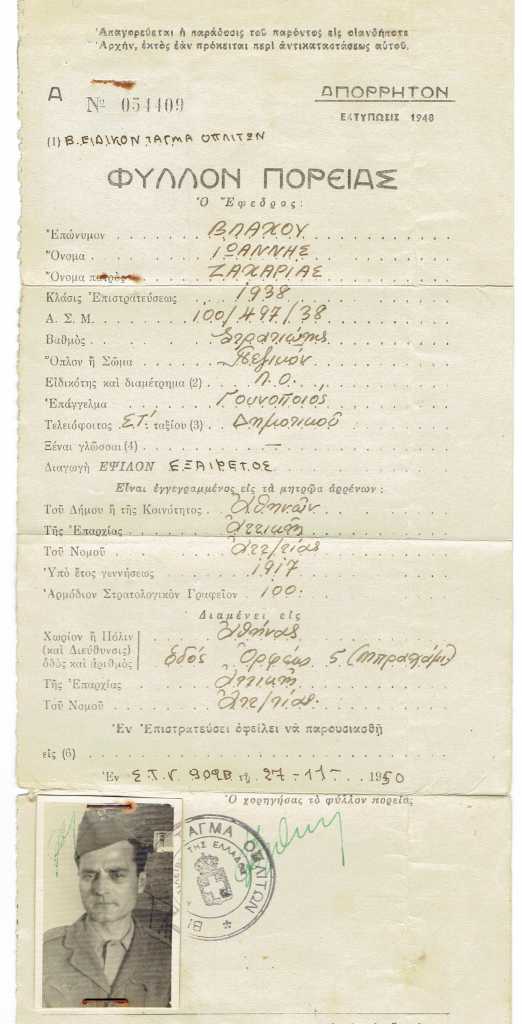 Ἀπαγορεύεται ἡ παράδοσις τοῦ παρόντος εἰς οἱανδήποτε
Ἀρχήν, ἐκτὸς ἐὰν πρόκειται περὶ ἀντικαταστάσεως αὐτοῦ.
Δ
Νº 054409
ΑΠΟΡΡΗΤΟΝ
ΕΚΤΥΠΩΣΙΣ 1948
(1) Β. ΕΙΔΙΚΟΝ ΤΑΓΜΑ ΟΠΛΙΤΩΝ
ΦΥΛΛΟΝ ΠΟΡΕΙΑΣ
Ὁ Ἔφεδρος:
Ἐπώνυμον ΒΛΑΧΟΥ
Ὄνομα ΙΩΑΝΝΗΣ
Ὄνομα πατρὸς ΖΑΧΑΡΙΑΣ
Κλάσις Ἐπιστρατεύσεως 1938
Α. Σ. Μ. 100/497/38
Βαθμὸς Στρατιώτης
Ὅπλον ἢ Σῶμα Πεζικόν
Εἰδικότης καὶ διαμέτρημα (2) Π.Ο.
Ἐπάγγελμα Γουνοποιός
Τελειόφοιτος ΣΤ' ταξίου (3) Δημοτικοῦ
Ξέναι γλῶσσαι (4) —
Διαγωγὴ ΕΨΙΛΟΝ ΕΞΑΙΡΕΤΟΣ
Εἶναι ἐγγεγραμμένος εἰς τὰ μητρῷα ἀρρένων:
Τοῦ Δήμου ἢ τῆς Κοινότητος Ἀθηνῶν
Τῆς Ἐπαρχίας Ἀττικῆς
Τοῦ Νομοῦ Ἀττ/τίας
Ὑπὸ ἔτος γεννήσεως 1917
Ἁρμόδιον Στρατολογικὸν Γραφεῖον 100.
Διαμένει εἰς
Χωρίον ἢ Πόλιν Ἀθήνας
(καὶ Διεύθυνσις)
ὁδὸς καὶ ἀριθμὸς ὁδός Ὀρφέως 5 (Μπραχάμι)
Τῆς Ἐπαρχίας Ἀττικῆς
Τοῦ Νομοῦ Ἀττ/τίας.
Ἐν Ἐπιστρατεύσει ὀφείλει νὰ παρουσιασθῇ
εἰς (6)
Ἐν Σ.Τ.Γ. 902Β τῇ 27-11- 1950
Ὁ χορηγήσας τὸ φύλλον πορείας
ΤΑΓΜΑ ΟΠΛΙΤΩΝ
ΤΗΣ ΕΛΛΑΔΟΣ